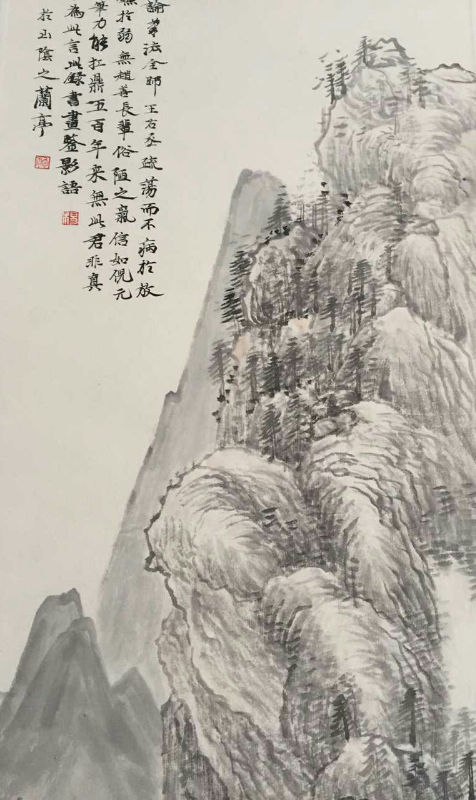 論筆法全師王右丞疏蕩而不病於放
於弱無趙善長輩俗陋之氣信如倪元
筆力能扛鼎五百年來無此君非真
為此言此錄書畫鑒影語
於山陰之蘭亭